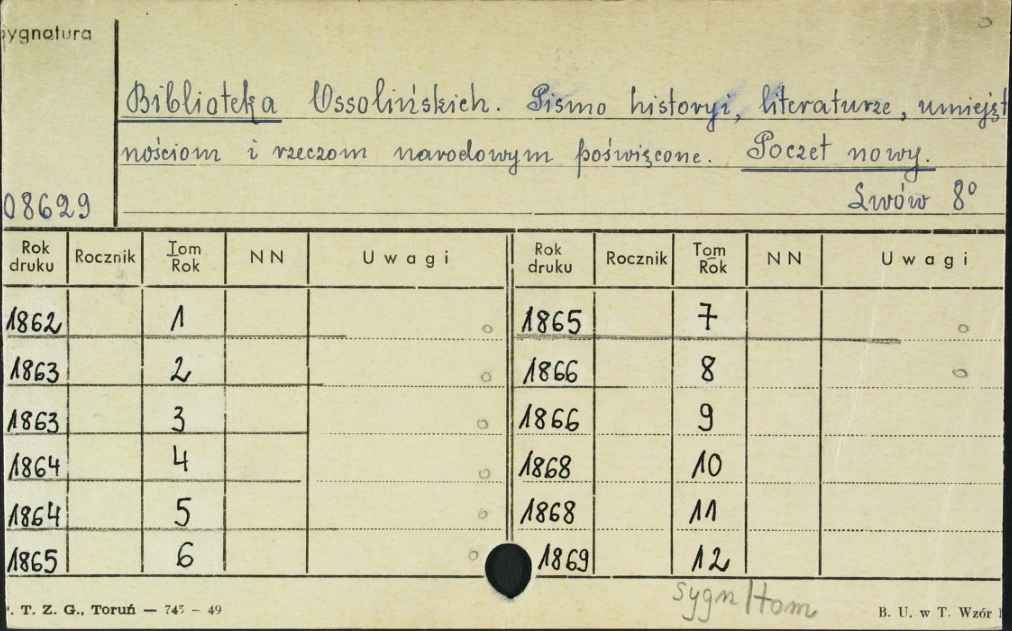 Sygnatura
Biblioteka Ossolińskich. Pismo historyi, literaturze, umiejęt
nościom i rzeczom narodowym poświęcone. Poczet nowy.
08629
Lwów 8°
Rok druku Rocznik Tom Rok NN Uwagi Rok druku Rocznik Tom Rok NN Uwagi
1862 1 1865 7
1863 2 1866 8
1863 3 1866 9
1864 4 1868 10
1864 5 1868 11
1865 6 1869 12
sygn/tom
. T. Z. G., Toruń — 745 - 49 B. U. w T. Wzór